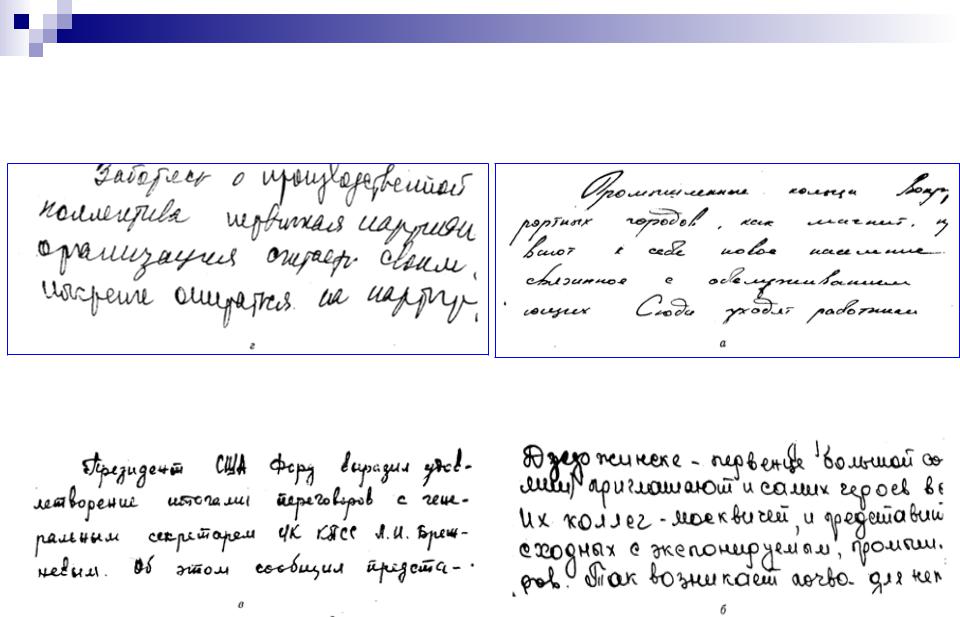 Заботясь о производственной
коллектива первичная партийн
организация считает своим
искренне опираться на партгр
г
Промышленные кольца вокру
рортных городов, как магнит, п
вают к себе новое население
связанное с обслуживанием
ющих Сюда уходят работники
а
Президент США Форд выразил удов-
летворение итогами переговоров с гене-
ральным секретарем ЦК КПСС Л.И. Бреж-
невым. Об этом сообщил предста-
в
Дзержинске - первенце большой со
приглашают и самих героев вс
Их коллег - москвичей, и представи
сходных с экспонируемым, громыш.
ров. Так возникает почва для неп
б